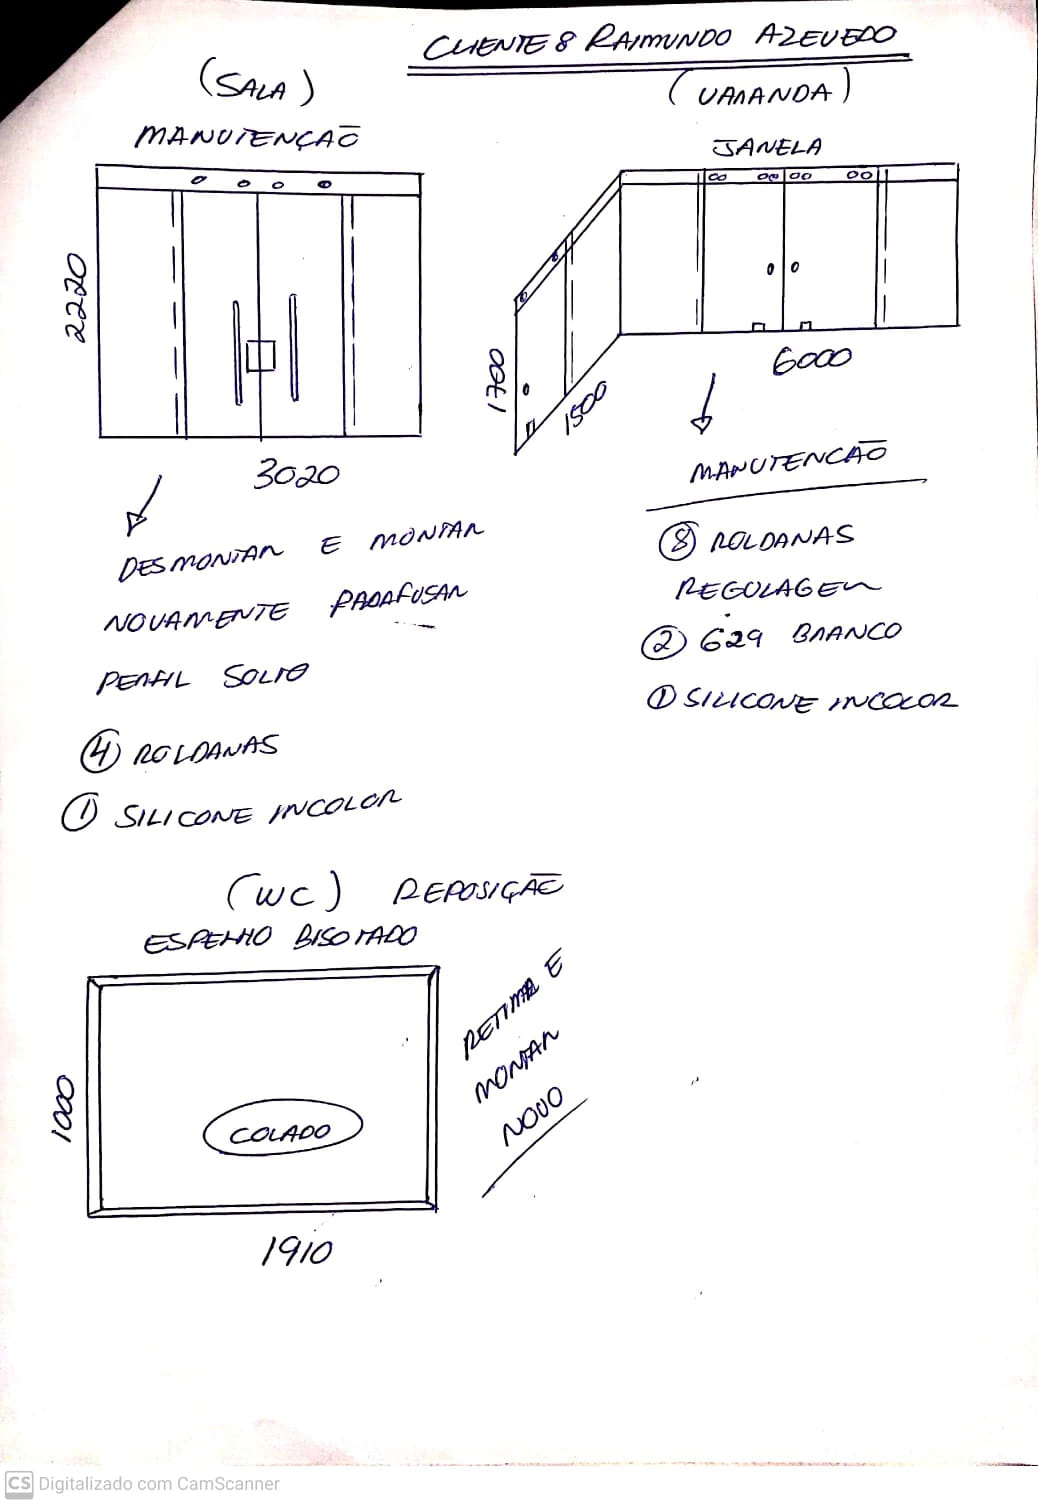 CLIENTE: RAIMUNDO AZEVEDO
(SALA)
MANUTENÇÃO
2220
3020
DESMONTAR E MONTAR
NOVAMENTE PARAFUSAR
PERFIL SOLTO
④ ROLDANAS
① SILICONE INCOLOR
(VARANDA)
JANELA
1700
1500
6000
MANUTENCÃO
⑧ ROLDANAS
REGULAGEM
② 629 BRANCO
① SILICONE INCOLOR
(WC) REPOSIÇÃO
ESPELHO BISOTADO
1000
COLADO
1910
RETIRAR E
MONTAR
NOVO
CS Digitalizado com CamScanner